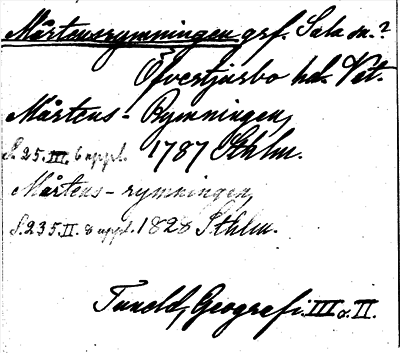 Mårtensrymningen grf. Sala sn.?
Öfvertjurbo hd. Vst.
Mårtens-Rymningen,
S. 25. III. 6 uppl. 1787 Sthlm.
Mårtens-rymningen,
S. 235. II. 8 uppl. 1828 Sthlm.
Tuneld, Geografi. III o. II.